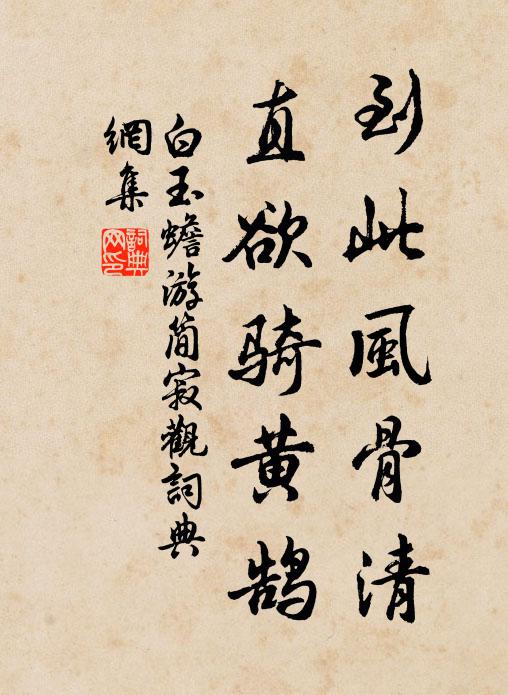 到此風骨清
直欲骑黄鹄
白玉蟾游简寂觀詞典
網集
詞典網印